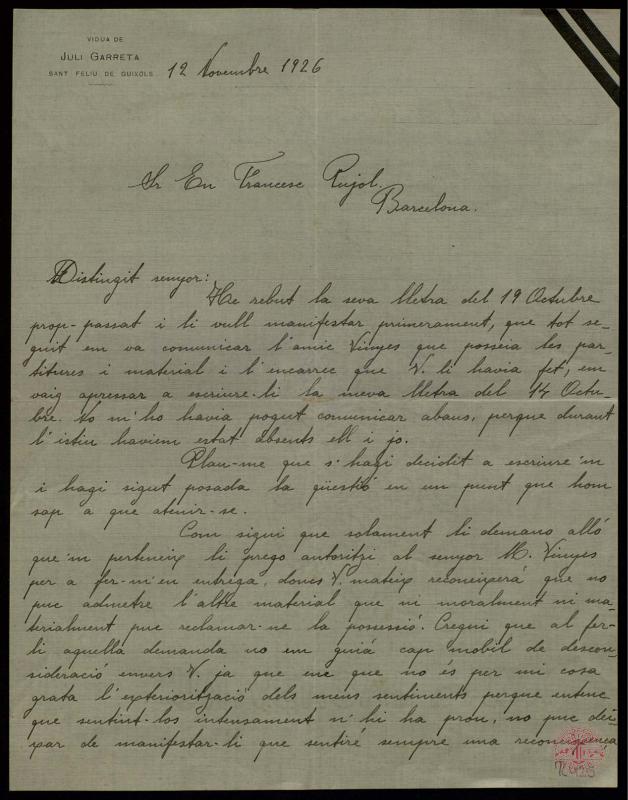 VIDUA DE
JULI GARRETA
SANT FELIU DE GUIXOLS
12 Novembre 1926
Sr En Francesc Pujol.
Barcelona.
Distingit senyor:
He rebut la seva lletra del 19 Octubre
prop-passat i li vull manifestar primerament, que tot se-
guit em va comunicar l'amic Vinyes que posseia les par-
titures i material i l'encarrec que V. li havia fet, em
vaig apressar a escriure-li la meva lletra del 14 Octu-
bre. No m'ho havia pogut comunicar abans, perque durant
l'istiu haviem estat absents ell i jo.
Plau-me que s'hagi decidit a escriure'm
i hagi sigut posada la qüestió en un punt que hom
sap a que atenir-se.
Com sigui que solament li demano alló
que'm perteneix li prego autoritzi al senyor M. Vinyes
per a fer-m'en entrega, doncs V. mateix reconeixerá que no
puc admetre l'altre material que ni moralment ni ma-
terialment puc reclamar-ne la possessió. Cregui que al fer-
li aquella demanda no em guiá cap mobil de descon-
sideració envers V. ja que encc que no és per mi cosa
grata l'exteriorització dels meus sentiments perque entenc
que sentint-los intensament n'hi ha prou, no puc dei-
xar de manifestar-li que sentiré sempre una reconeixença